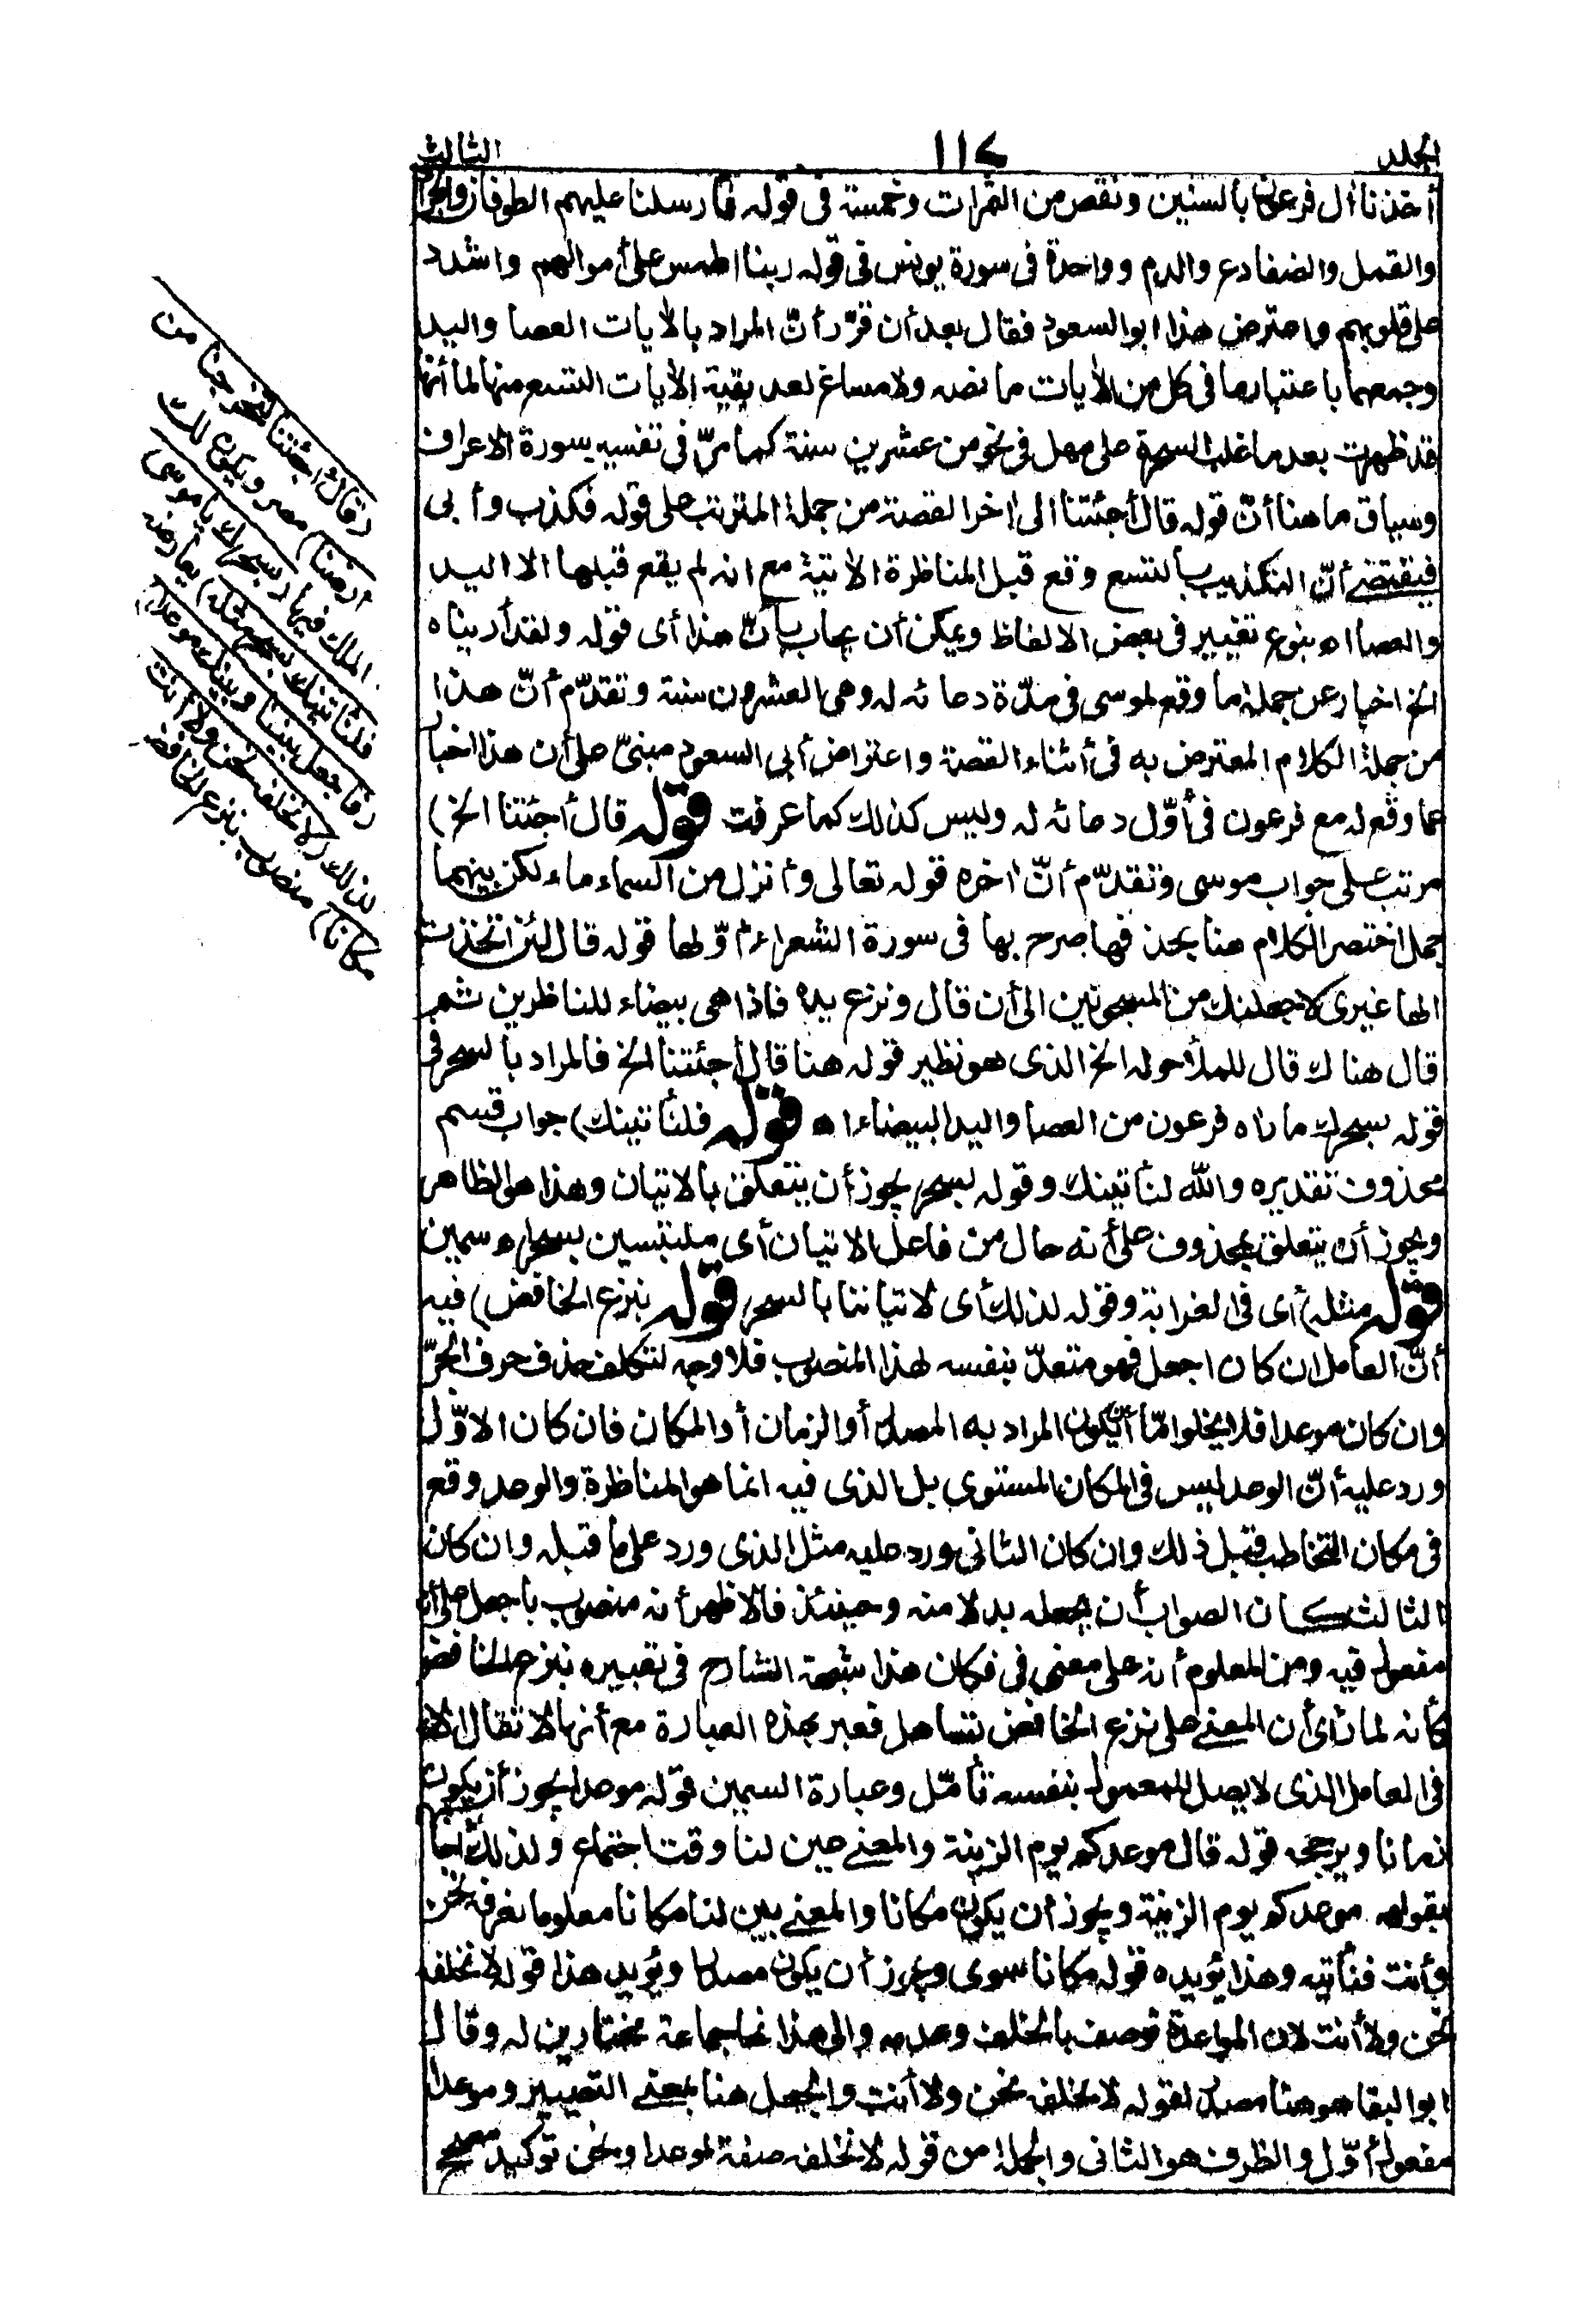 المجلد ١١٤ الثالث
أخذنا آل فرعون بالسنين ونقص من الثمرات وخمسة فى قوله فأرسلنا عليهم الطوفان والجرا
والقمل والضفادع والدم وواحدة فى سورة يونس فى قوله ربنا اطمس على أموالهم واشدد
على قلوبهم واعترض هذا ابو السعود فقال بعد أن قرّر أنّ المراد بالآيات العصا واليد
وجمعهما باعتبار ما فى كل من الآيات ما نصه ولا مساغ لعد بقية الآيات التسع منها لما أنها
قد ظهرت بعد ما غلب السحرة على مهل فى نحو من عشرين سنة كما مرّ فى تفسير سورة الاعراف
وسياق ما هنا أنّ قوله قال أجئتنا الى اخر القصة من جملة المترتب على قوله فكذب وأبى
فيقتضى أنّ التكذيب بالتسع وقع قبل المناظرة الآتية مع انه لم يقع قبلها الا اليد
والعصا اه بنوع تغيير فى بعض الالفاظ ويمكن أن يجاب بأنّ هذا أى قوله ولقد أريناه
الخ اخبار عن جملة ما وقع لموسى فى مدّة دعائه له وهى العشرون سنة وتقدّم أنّ هذا
من جملة الكلام المعترض به فى أثناء القصة واعتراض أبى السعود مبنىّ على أن هذا اخبا
عما وقع له مع فرعون فى أوّل دعائه له وليس كذلك كما عرفت قوله قال أجئتنا الخ)
مرتب على جواب موسى وتقدّم أنّ اخره قوله تعالى وأنزل من السماء ماء لكن بينهما
جمل اختصر الكلام هنا بحذفها صرح بها فى سورة الشعراء أوّلها قوله قال لئن اتخذت
الها غيرى لاجعلنك من المسجونين الى أن قال ونزع يده فاذا هى بيضاء للناظرين ثم
قال هناك قال للملأ حوله الخ الذى هو نظير قوله هنا قال أجئتنا الخ فالمراد بالسحر فى
قوله بسحرك ما رآه فرعون من العصا واليد البيضاء اه قوله فلنأتينك) جواب قسم
محذوف تقديره والله لنأتينك وقوله بسحر يجوز أن يتعلق بالاتيان وهذا هو الظاهر
ويجوز أن يتعلق بمحذوف على أنه حال من فاعل الاتيان أى ملتبسين بسحر اه سمين
قوله مثله) أى فى الغرابة وقوله لذلك أى لاتياننا بالسحر قوله بنزع الخافض) فيه
أنّ العامل ان كان اجعل فهو متعدّ بنفسه لهذا المنصوب فلا وجه لتكلف حذف حرف الجرّ
وان كان موعدا فلا يخلوا مّا أن يكون المراد به المصدر أو الزمان أو المكان فان كان الاوّل
ورد عليه أنّ الوعد ليس فى المكان المستوى بل الذى فيه انما هو المناظرة والوعد وقع
فى مكان التخاطب قبل ذلك وان كان الثانى ورد عليه مثل الذى ورد على ما قبله وان كان
الثالث كان الصواب أن يجعله بدلا منه وحينئذ فالاظهر أنه منصوب باجعل على أنه
مفعول فيه ومن المعلوم أنه على معنى فى فكان هذا شبهة الشارح فى تعبيره بنزع الخافض
كأنه لما رأى أن المعنى على نزع الخافض تساهل فعبر بهذه العبارة مع أنها لا تقال الا
فى العامل الذى لا يصل للمعمول بنفسه تأمّل وعبارة السمين قوله موعدا يجوز أن يكون
زمانا ويرجحه قوله قال موعدكم يوم الزينة والمعنى عين لنا وقت اجتماع ولذلك أجابهم
بقوله موعدكم يوم الزينة ويجوز أن يكون مكانا والمعنى بين لنا مكانا معلوما نعرفه نحن
وأنت فنأتيه وهذا يؤيده قوله مكانا سوى ويجوز أن يكون مصدرا ويؤيد هذا قوله لا نخلفه
نحن ولا أنت لان المواعدة توصف بالخلف وعدمه والى هذا نحا جماعة مختارين له وقال
ابو البقا هو هنا مصدر لقوله لا نخلفه نحن ولا أنت والجعل هنا بمعنى التصيير وموعدا
مفعول أوّل والظرف هو الثانى والجملة من قوله لا نخلفه صفة لموعدا ونحن توكيد مصحح
(قال أجئتنا لتخرجنا من
أرضنا) مصر ويكون لك
الملك فيها (بسحرك يا موسى
فلنأتينك بسحر مثله) يعارضه
(فاجعل بيننا وبينك موعدا)
لذلك (لا نخلفه نحن ولا أنت
مكانا) منصوب بنزع الخافض